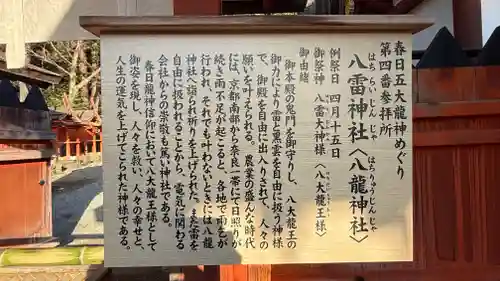 春日五大龍神めぐり
第四番拝所
八雷神社〈八龍神社〉
はちらいじんじゃ
はちりゅうじんじゃ
例祭日 四月十五日
御祭神 八雷大神様〈八大龍王様〉
御由緒
御本殿の鬼門を御守りし、八大龍王の
御力により雷と黒雲を自由に扱う神様
で、御殿を自由に出入りされて、人々の
願いを叶えられる。農業の盛んな時代
には、京都南部から奈良一帯にて日照りが
続き雨不足が起こると、各地で雨乞が
行われ、それでも叶わないときには八龍
神社へ詣られ祈りを上げられた。また雷を
自由に扱われることから、電気に関わる
会社からの崇敬も篤い神社である。
春日龍神信仰において八大龍王様として
御姿を現し、人々を救い、人々の幸せと、
人生の運気を上げてこられた神様である。